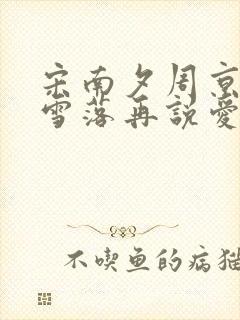 宋南夕周京
雪落再說愛
不喫鱼的病猫